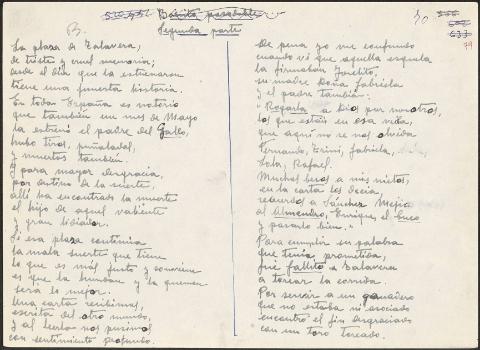 Segunda parte
B.
La plaza de Talavera,
de triste y cruel memoria;
desde el día que la estrenaron
tiene una funesta historia.
En toda España es notorio
que también un mes de Mayo
la estrenó el padre del Gallo,
hubo tiros, puñaladas,
y muertos también.
Y para mayor desgracia,
por destino de la suerte,
allí ha encontrado la muerte
el hijo de aquel valiente
y gran lidiador.
Si esa plaza continúa
la mala suerte que tiene
lo que es más justo y conviene
es que la hundan y la quemen
será lo mejor.
Una carta recibimos,
escrita del otro mundo,
y al leerla nos pusimos
con sentimiento profundo.
70
633
79
De pena yo me confundo
cuando vi que aquella esquela
la firmaban Joselito,
su madre Doña Gabriela
y el padre también:
"Rogarla a Dios por nosotros,
los que estáis en esa vida,
que aquí no se nos olvida
Fernando, Trini, Gabriela,
Lola, Rafael.
Muchos besos a mis nietos,
en la carta les decía,
recuerdos a Sánchez Mejía
al Almendro, Enrique, el Cuco
y pasarlo bien."
Para cumplir su palabra
que tenía prometida,
fué Gallito a Talavera
a torear la corrida.
Por servir a un ganadero
que no estaba ni asociado
encontró el fin desgraciado
con un toro toreado.